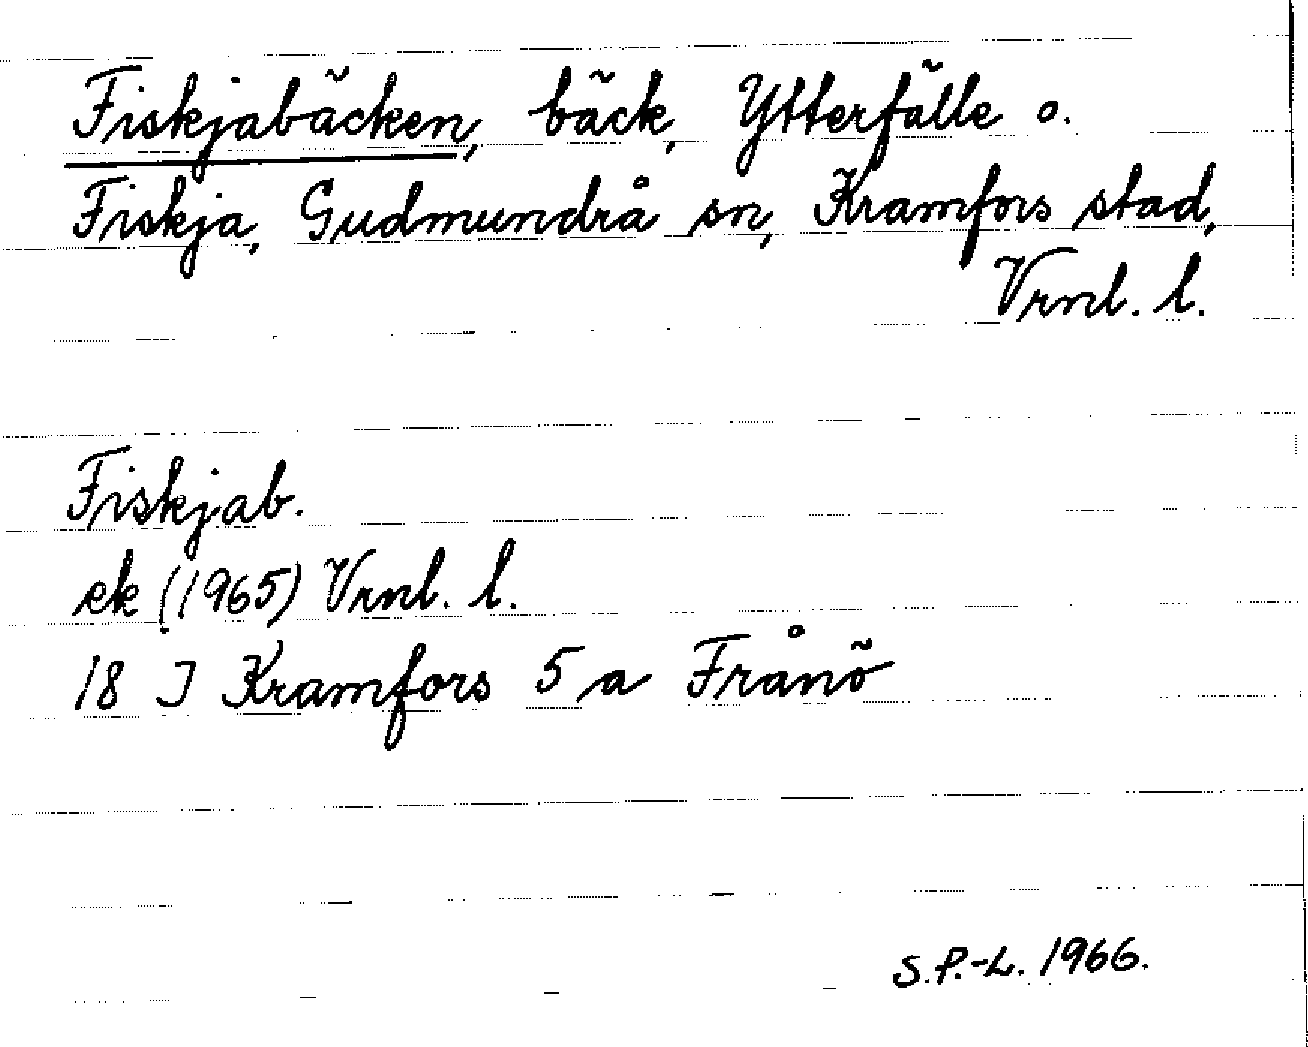 Fiskjabäcken, bäck, Ytterfälle o.
Fiskja, Gudmundrå sn, Kramfors stad,
Vrnl. l.
Fiskjab.
ek (1965) Vrnl. l.
18 I Kramfors 5 a Frånö
S.P.-L. 1966.